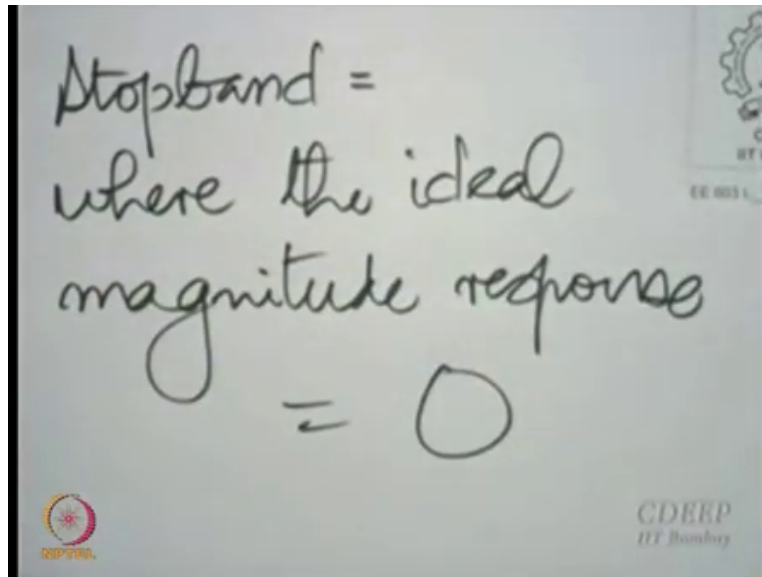 Stopband =
where the ideal
magnitude response
= 0
NPTEL
CDEEP
IIT Bombay